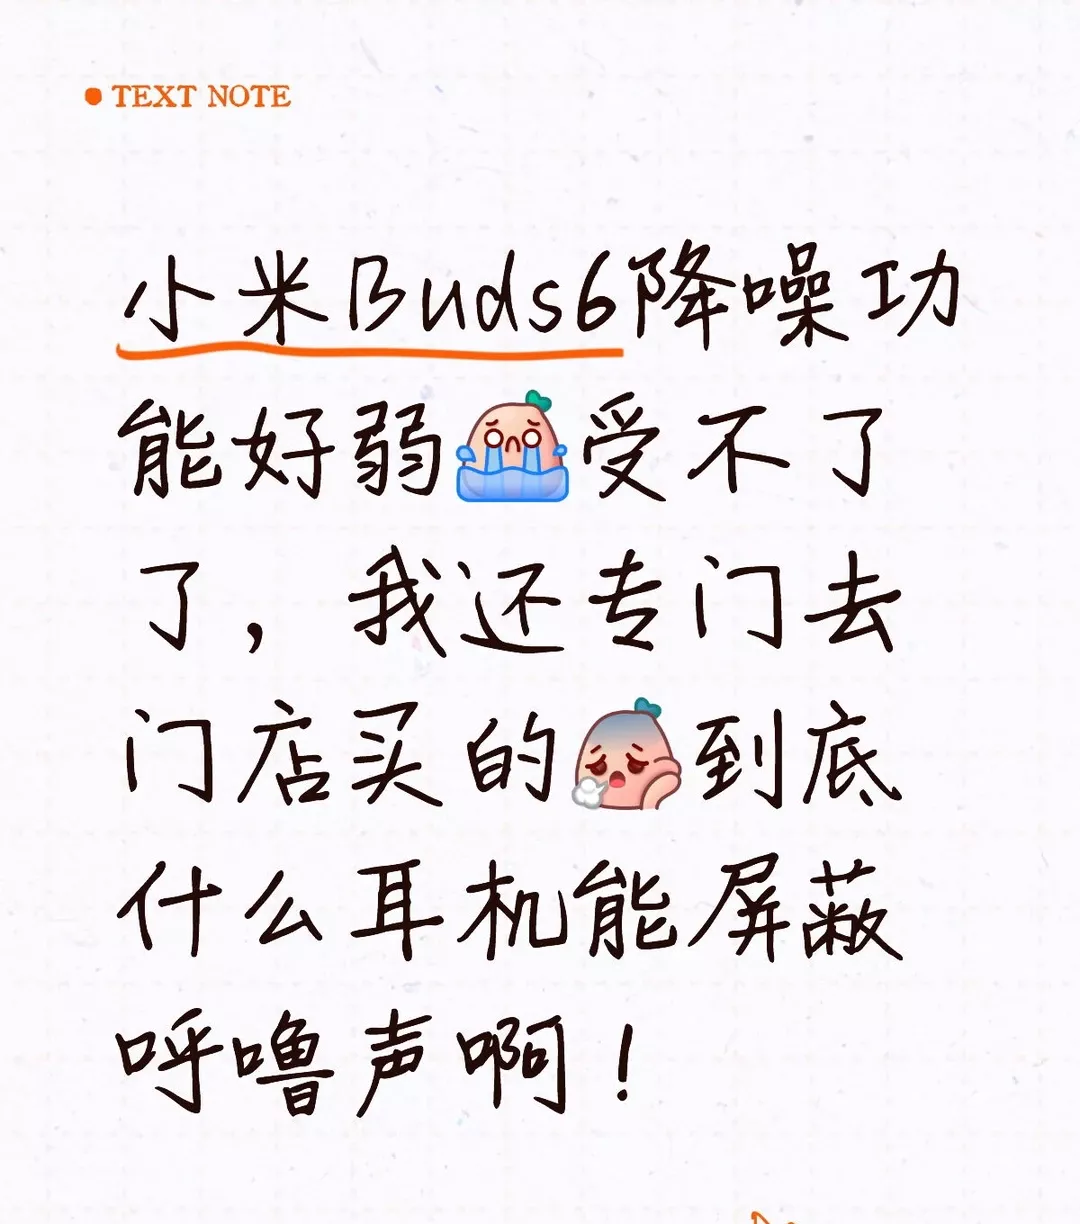 TEXT NOTE
小米Buds6降噪功
能好弱😭受不了
了，我还专门去
门店买的😮‍💨到底
什么耳机能屏蔽
呼噜声啊！